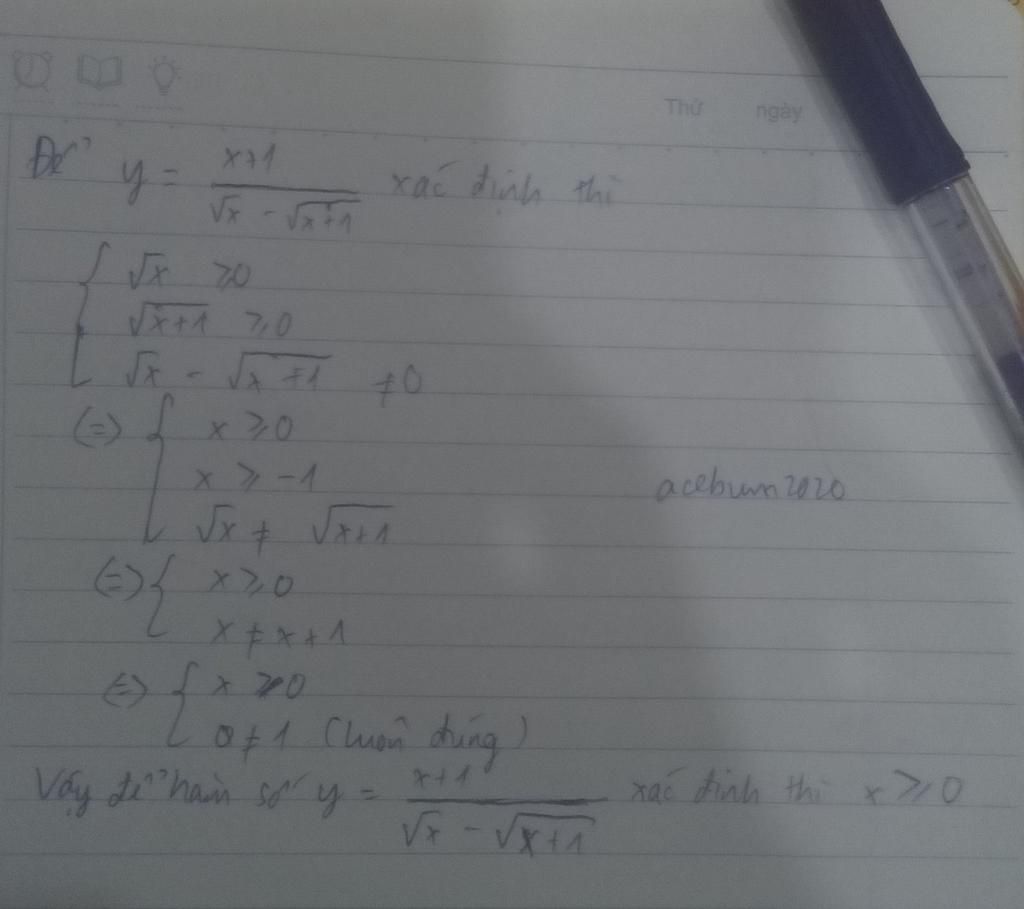 Thứ ngày
Để y = (x+1)/(√x - √(x+1)) xác định thì
√x ≥ 0
√(x+1) ≥ 0
√x - √(x+1) ≠ 0
(=) { x ≥ 0
x ≥ -1
√x ≠ √(x+1)
acebum2020
(=) { x ≥ 0
x ≠ x + 1
(=) { x ≥ 0
0 ≠ 1 (luôn đúng)
Vậy để hàm số y = (x+1)/(√x - √(x+1)) xác định thì x ≥ 0